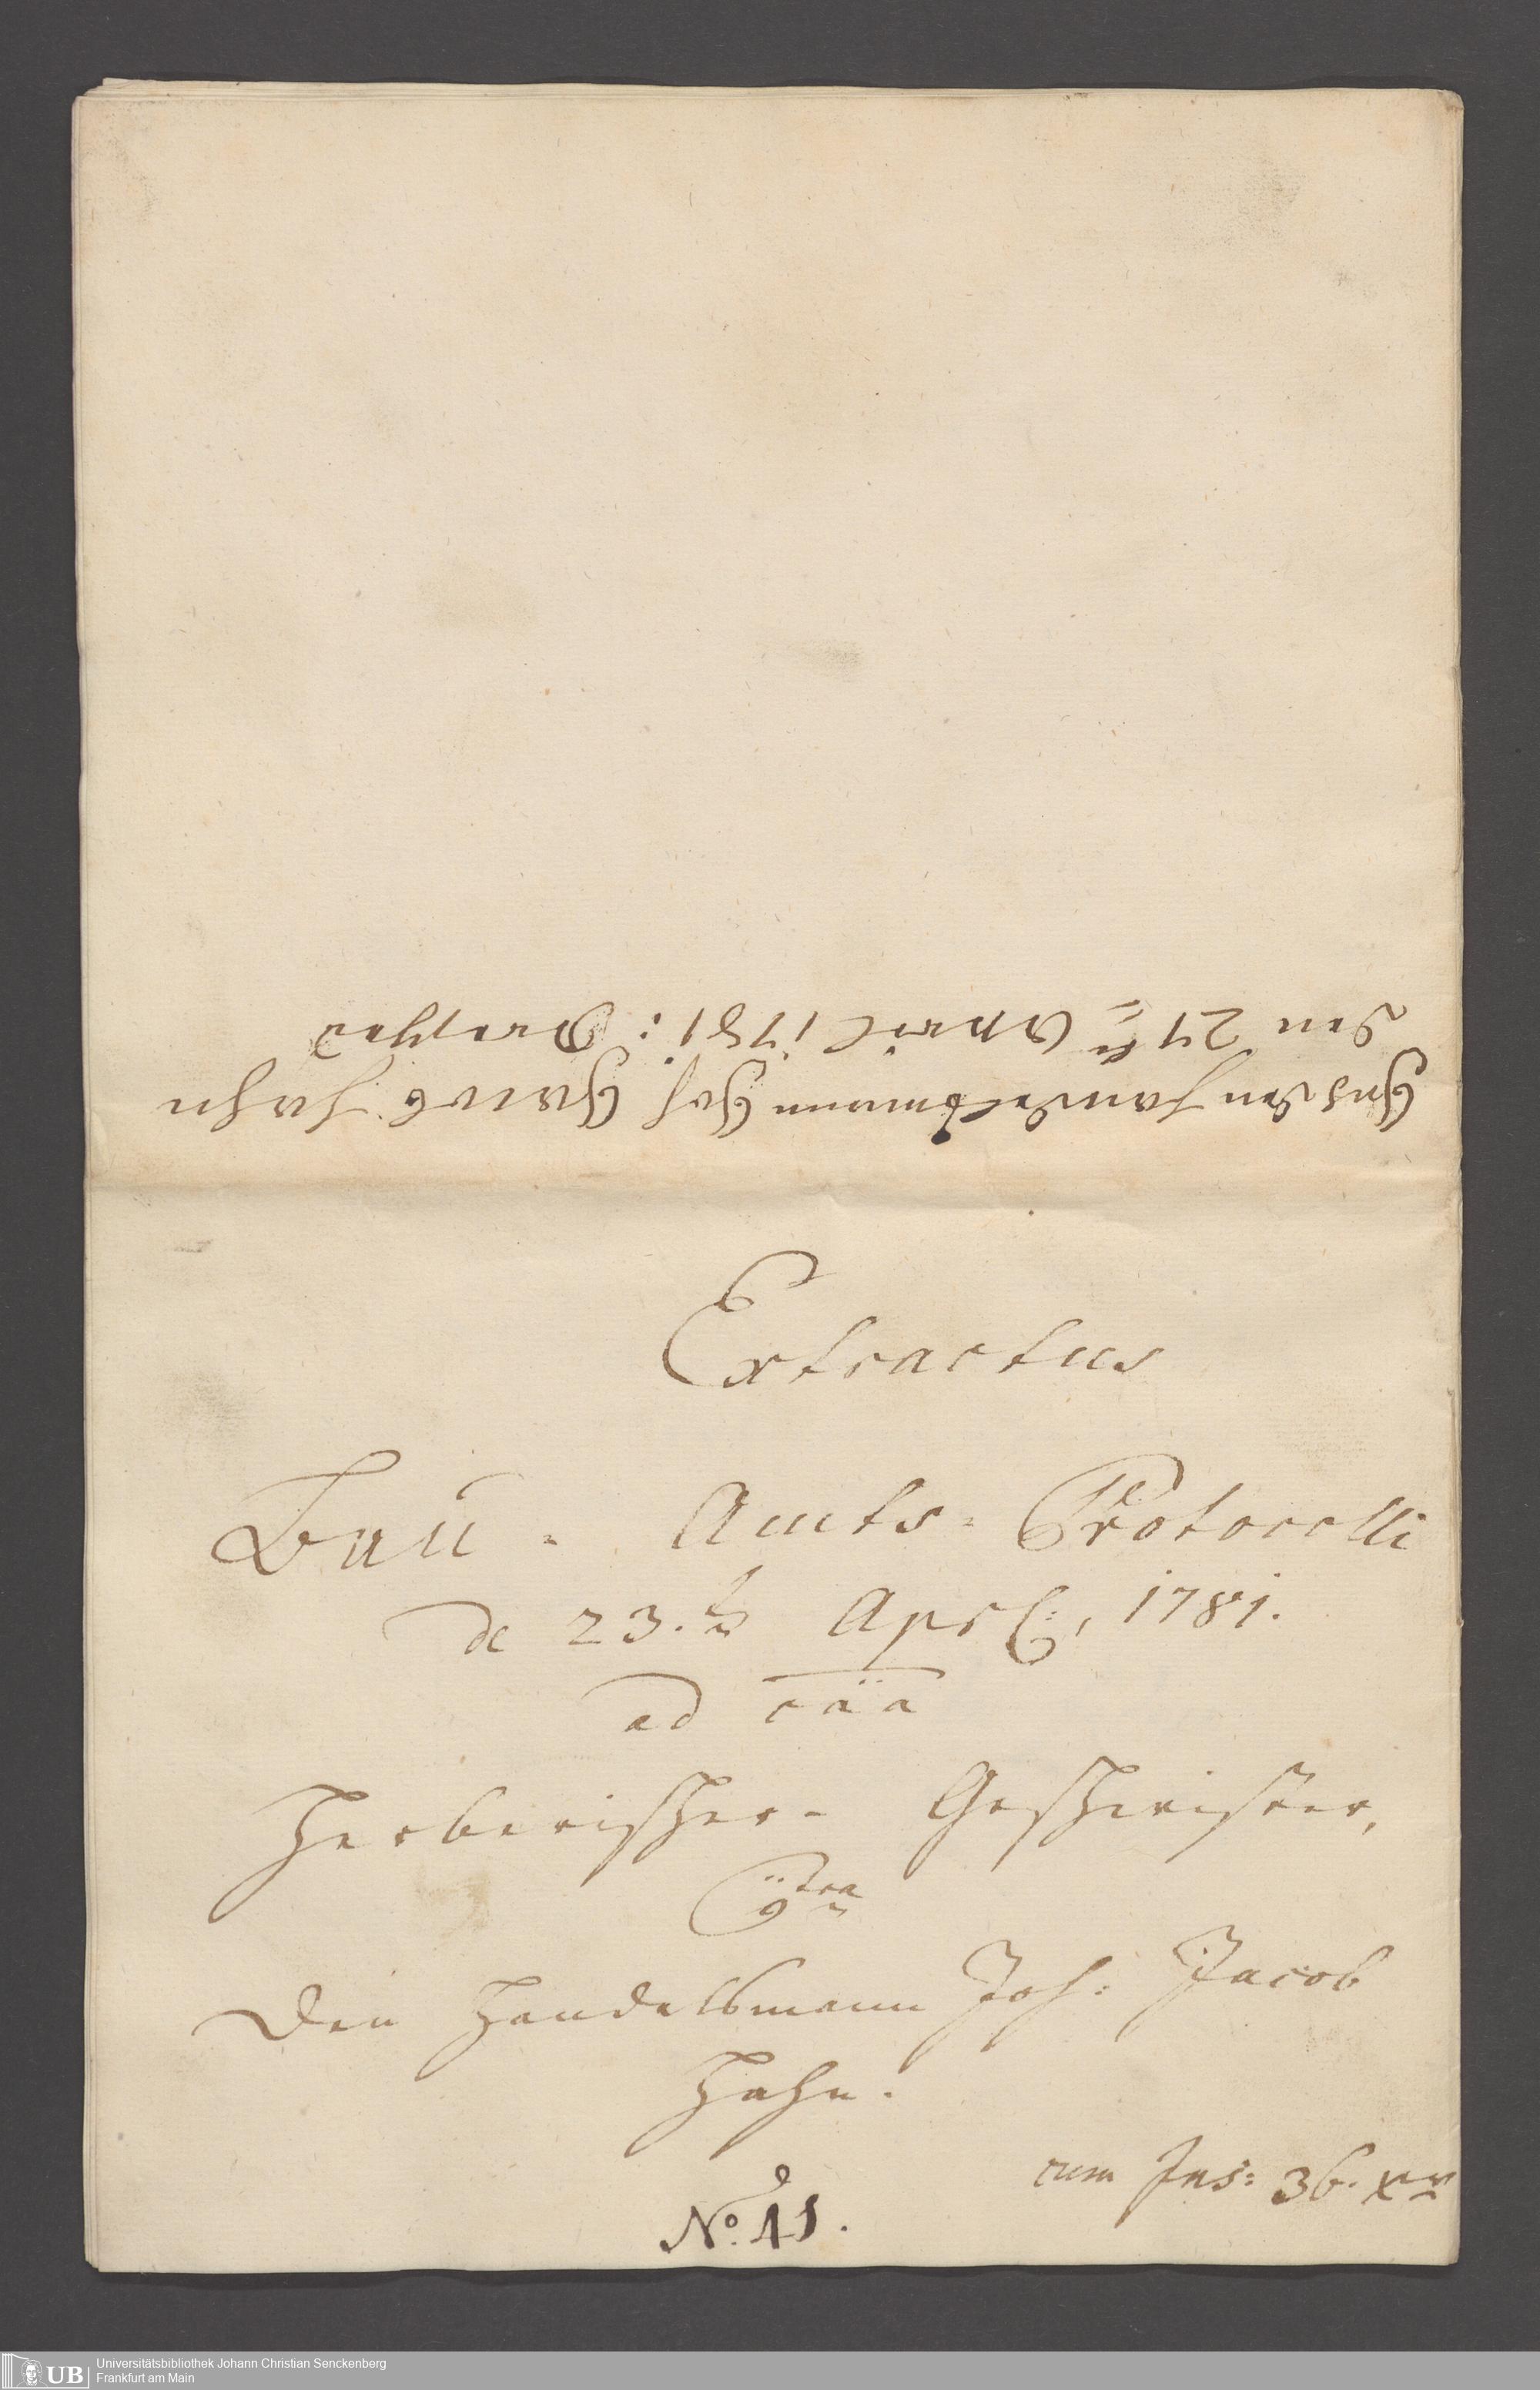 Ins den Handelsmann Joh Jacob Hahn
den 24te April 1781:
Extractus
Bau- Amts- Protocolli
de 23.ten Apri: 1781.
ad caä
Herberischer- Geschwister,
Cᵒ̈tra
Den Handelsmann Joh: Jacob
Hahn.
cum Ins: 36. xr
No. 41.
Universitätsbibliothek Johann Christian Senckenberg
Frankfurt am Main
UB